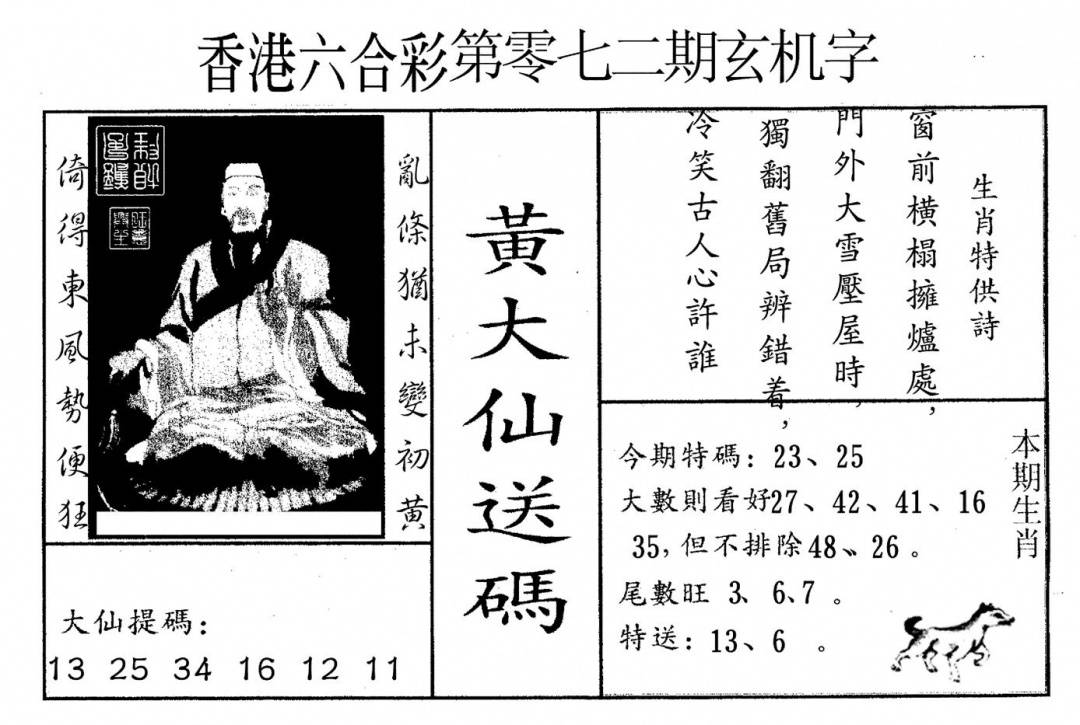 香港六合彩第零七二期玄机字
亂條猶未變初黃
倚得東風勢便狂
大仙提碼：
13 25 34 16 12 11
黃大仙送碼
生肖特供詩
窗前橫榻擁爐處，
門外大雪壓屋時，
獨翻舊局辨錯着，
冷笑古人心許誰
本期生肖
今期特碼：23、25
大數則看好27、42、41、16
35，但不排除48、26。
尾數旺 3、6、7。
特送：13、6。